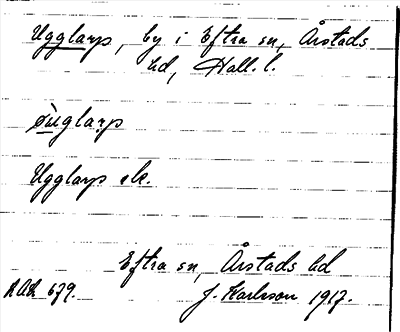 Ugglarp, by i Eftra sn, Årstads
hd, Hall. l.
øùglarp
Ugglarp sk.
Eftra sn, Årstads hd
AAK 679. J. Karlsson 1917.